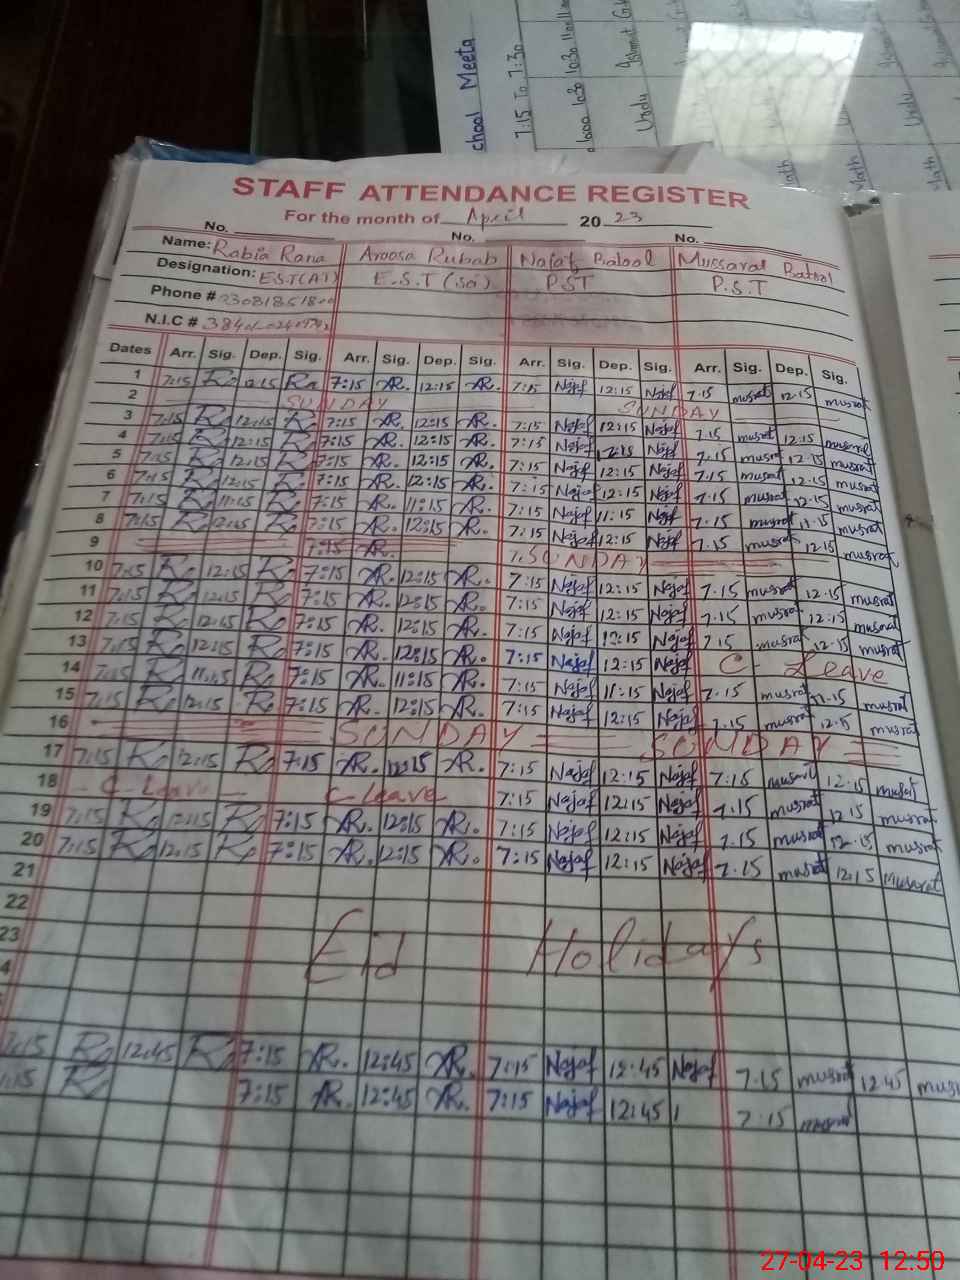 chool Meeta
7:15 To 7:30
10:30
Urdu
Math
Urdu
Math
STAFF ATTENDANCE REGISTER
For the month of April 2023
No. No. No.
Name: Rabia Rana Aroosa Rubab Najaf Batool Mussarat Batool
Designation: E.S.T(AT) E.S.T (Sci) PST P.S.T
Phone #
N.I.C #
Dates Arr. Sig. Dep. Sig. Arr. Sig. Dep. Sig. Arr. Sig. Dep. Sig. Arr. Sig. Dep. Sig.
1 7:15 R. 12:15 R. 7:15 AR. 12:15 AR. 7:15 Najaf 12:15 Najaf 7.15 musrat 12.15 musrat
2 SUNDAY SUNDAY
3 7:15 R. 12:15 R. 7:15 AR. 12:15 AR. 7:15 Najaf 12:15 Najaf 7.15 musrat 12.15 musrat
4 7:15 R. 12:15 R. 7:15 AR. 12:15 AR. 7:15 Najaf 12:15 Najaf 7.15 musrat 12.15 musrat
5 7:15 R. 12:15 R. 7:15 AR. 12:15 AR. 7:15 Najaf 12:15 Najaf 7.15 musrat 12.15 musrat
6 7:15 R. 12:15 R. 7:15 AR. 12:15 AR. 7:15 Najaf 12:15 Najaf 7.15 musrat 12.15 musrat
7 7:15 R. 11:15 R. 7:15 AR. 11:15 AR. 7:15 Najaf 11:15 Najaf 7.15 musrat 11.15 musrat
8 7:15 R. 12:15 R. 7:15 AR. 12:15 AR. 7:15 Najaf 12:15 Najaf 7.15 musrat 12.15 musrat
9 7:15 AR. 7. SUNDAY
10 7:15 R. 12:15 R. 7:15 AR. 12:15 AR. 7:15 Najaf 12:15 Najaf 7.15 musrat 12.15 musrat
11 7:15 R. 12:15 R. 7:15 AR. 12:15 AR. 7:15 Najaf 12:15 Najaf 7.15 musrat 12.15 musrat
12 7:15 R. 12:15 R. 7:15 AR. 12:15 AR. 7:15 Najaf 12:15 Najaf 7.15 musrat 12.15 musrat
13 7:15 R. 12:15 R. 7:15 AR. 12:15 AR. 7:15 Najaf 12:15 Najaf C- Leave
14 7:15 R. 11:15 R. 7:15 AR. 11:15 AR. 7:15 Najaf 11:15 Najaf 7.15 musrat 11.15 musrat
15 7:15 R. 12:15 R. 7:15 AR. 12:15 AR. 7:15 Najaf 12:15 Najaf 7.15 musrat 12.15 musrat
16 SUNDAY SUNDAY
17 7:15 R. 12:15 R. 7:15 AR. 12:15 AR. 7:15 Najaf 12:15 Najaf 7:15 musrat 12.15 musrat
18 - C-Leave - C-Leave 7:15 Najaf 12:15 Najaf 7.15 musrat 12.15 musrat
19 7:15 R. 12:15 R. 7:15 AR. 12:15 AR. 7:15 Najaf 12:15 Najaf 7.15 musrat 12.15 musrat
20 7:15 R. 12:15 R. 7:15 AR. 12:15 AR. 7:15 Najaf 12:15 Najaf 7.15 musrat 12.15 Musarat
21
22
23 Eid Holidays
4
7:15 R. 12:45 R. 7:15 AR. 12:45 AR. 7:15 Najaf 12:45 Najaf 7.15 musrat 12.45
:15 R. 7:15 AR. 12:45 AR. 7:15 Najaf 12:45 7.15 musrat
27-04-23 12:50